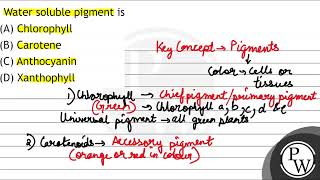 Water soluble pigment is
(A) Chlorophyll
(B) Carotene
(C) Anthocyanin
(D) Xanthophyll
Key Concept → Pigments
↓
Color → Cells or
tissues
1) Chlorophyll → Chief pigment/primary pigment
(Green) → Chlorophyll a, b, c, d & e
Universal pigment → all green plants
2) Carotenoids → Accessory pigment
(orange or red in colour)
PW